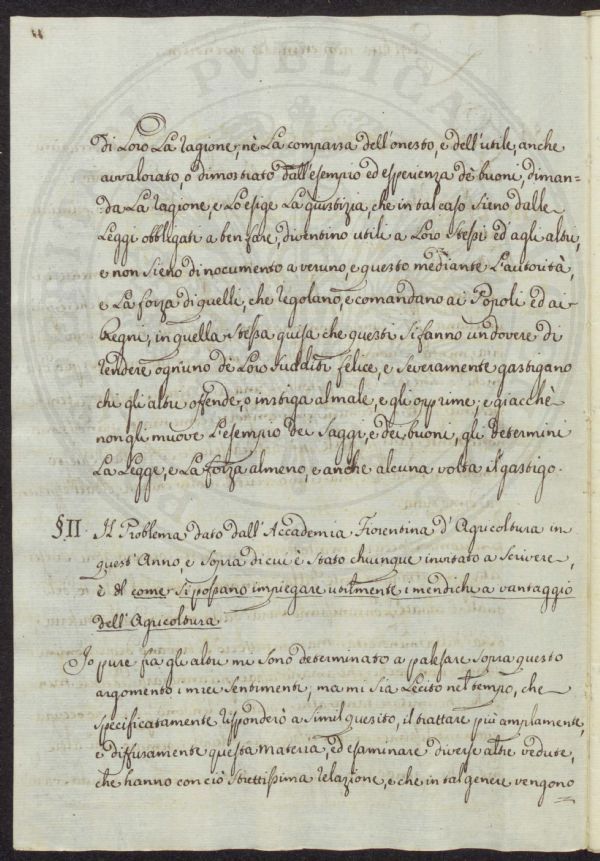 di Loro La ragione, nè La comparsa dell'onesto, e dell'utile, anche
avvalorato, o dimostrato dall'esempio ed esperienza de' buoni, diman=
da La ragione, e Lo esige La giustizia, che in tal caso Sieno dalle
Leggi obbligati a ben fare, diventino utili a Loro Stessi ed agli altri,
e non Sieno di nocumento a veruno, e questo mediante L'autorità,
e La forza di quelli, che regolano, e comandano ai Popoli ed ai
Regni, in quella Stessa guisa che questi Si fanno un dovere di
rendere ogn'uno de' Loro Sudditi felice, e Severamente gastigano
chi gli altri offende, o instiga al male, e gli opprime; e giacchè
non gli muove L'esempio dei Saggi, e de' buoni, gli determini
La Legge, e La forza almeno, e anche alcuna volta il gastigo.
§ II. Il Problema dato dall'Accademia Fiorentina d'Agricoltura in
quest'Anno, e Sopra di cui è Stato chiunque invitato a Scrivere,
è il come Si possano impiegare utilmente i mendichi a vantaggio
dell'Agricoltura
Io pure fra gli altri mi Sono determinato a palesare Sopra questo
argomento i miei Sentimenti, ma mi Sia Lecito nel tempo, che
Specificatamente risponderò a Simil quesito, il trattare più amplamente,
e diffusamente questa materia, ed esaminare diverse altre vedute,
che hanno con ciò Strettissima relazione, e che in tal genere vengono